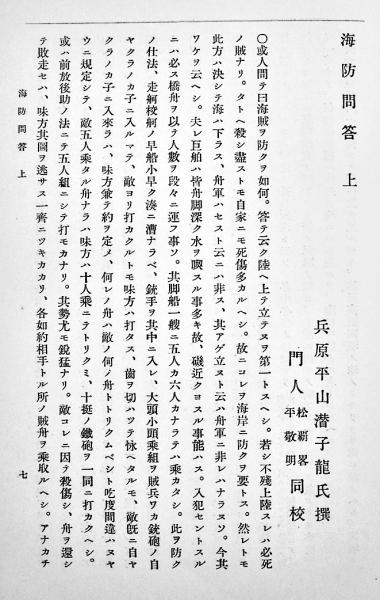 海防問答 上
兵原平山潜子龍氏撰
門人
松 客
平敬明
同校
〇或人問テ曰海賊ヲ防クヲ如何。答テ云ク陸ヘ上テ立テヌヲ第一トスヘシ。若シ不残上陸スレハ必死
ノ賊ナリ。タトヘ殺シ盡ストモ自家ニモ死傷多カルヘシ。故ニコレヲ海岸ニ防クヲ要トス。然レトモ
此方ハ決シテ海ヘ下ラス、舟軍ハセスト云ニハ非ス、其アゲ立ヌト云ハ舟軍ニ非レハナラヌソ。今其
ワケヲ云ヘシ。夫レ巨舶ハ皆舟脚深ク水ヲ喫スル事多キ故、磯近クヨスル事能ハス。入犯セントスル
ニハ必ス橋舟ヲ以テ人數ヲ段々ニ運フ事ソ。其脚船一艘ニ五人カ六人カナラテハ乗カタシ。此ヲ防ク
ノ仕法、走舸棱舸ノ早船小早ク湊ニ漕ナラベ、銃手ヲ其中ニ入レ、大頭小頭乗組ヲ賊兵ヲカ銃砲ノ自
ヤクラノカ子ニ入ルマテ、敵ヨリ打カクルトモ味方ハ打タス、齒ヲ切ハツテ怺ヘタルモ、敵旣ニ自ヤ
クラノカ子ニ入來ラハ、味方兼テ約ヲ定メ、何レノ舟ハ敵ノ何ノ舟トトリクムベシト吃度間違ハヌヤ
ウニ規定シテ、敵五人乗タル舟ナラハ味方ハ十人乗ニテトリクミ、十挺ノ鐵砲ヲ一同ニ打カクヘシ。
或ハ前放後助ノ法ニテ五人組ニシテ打モカナリ。其勢尤モ銳猛ナリ。敵コレニ因テ殺傷シ、舟ヲ還シ
テ敗走セハ、味方其圖ヲ逃サス一齊ニツキカカリ、各如約相手トル所ノ賊舟ヲ乘取ルヘシ。アナカチ
海防問答 上
七